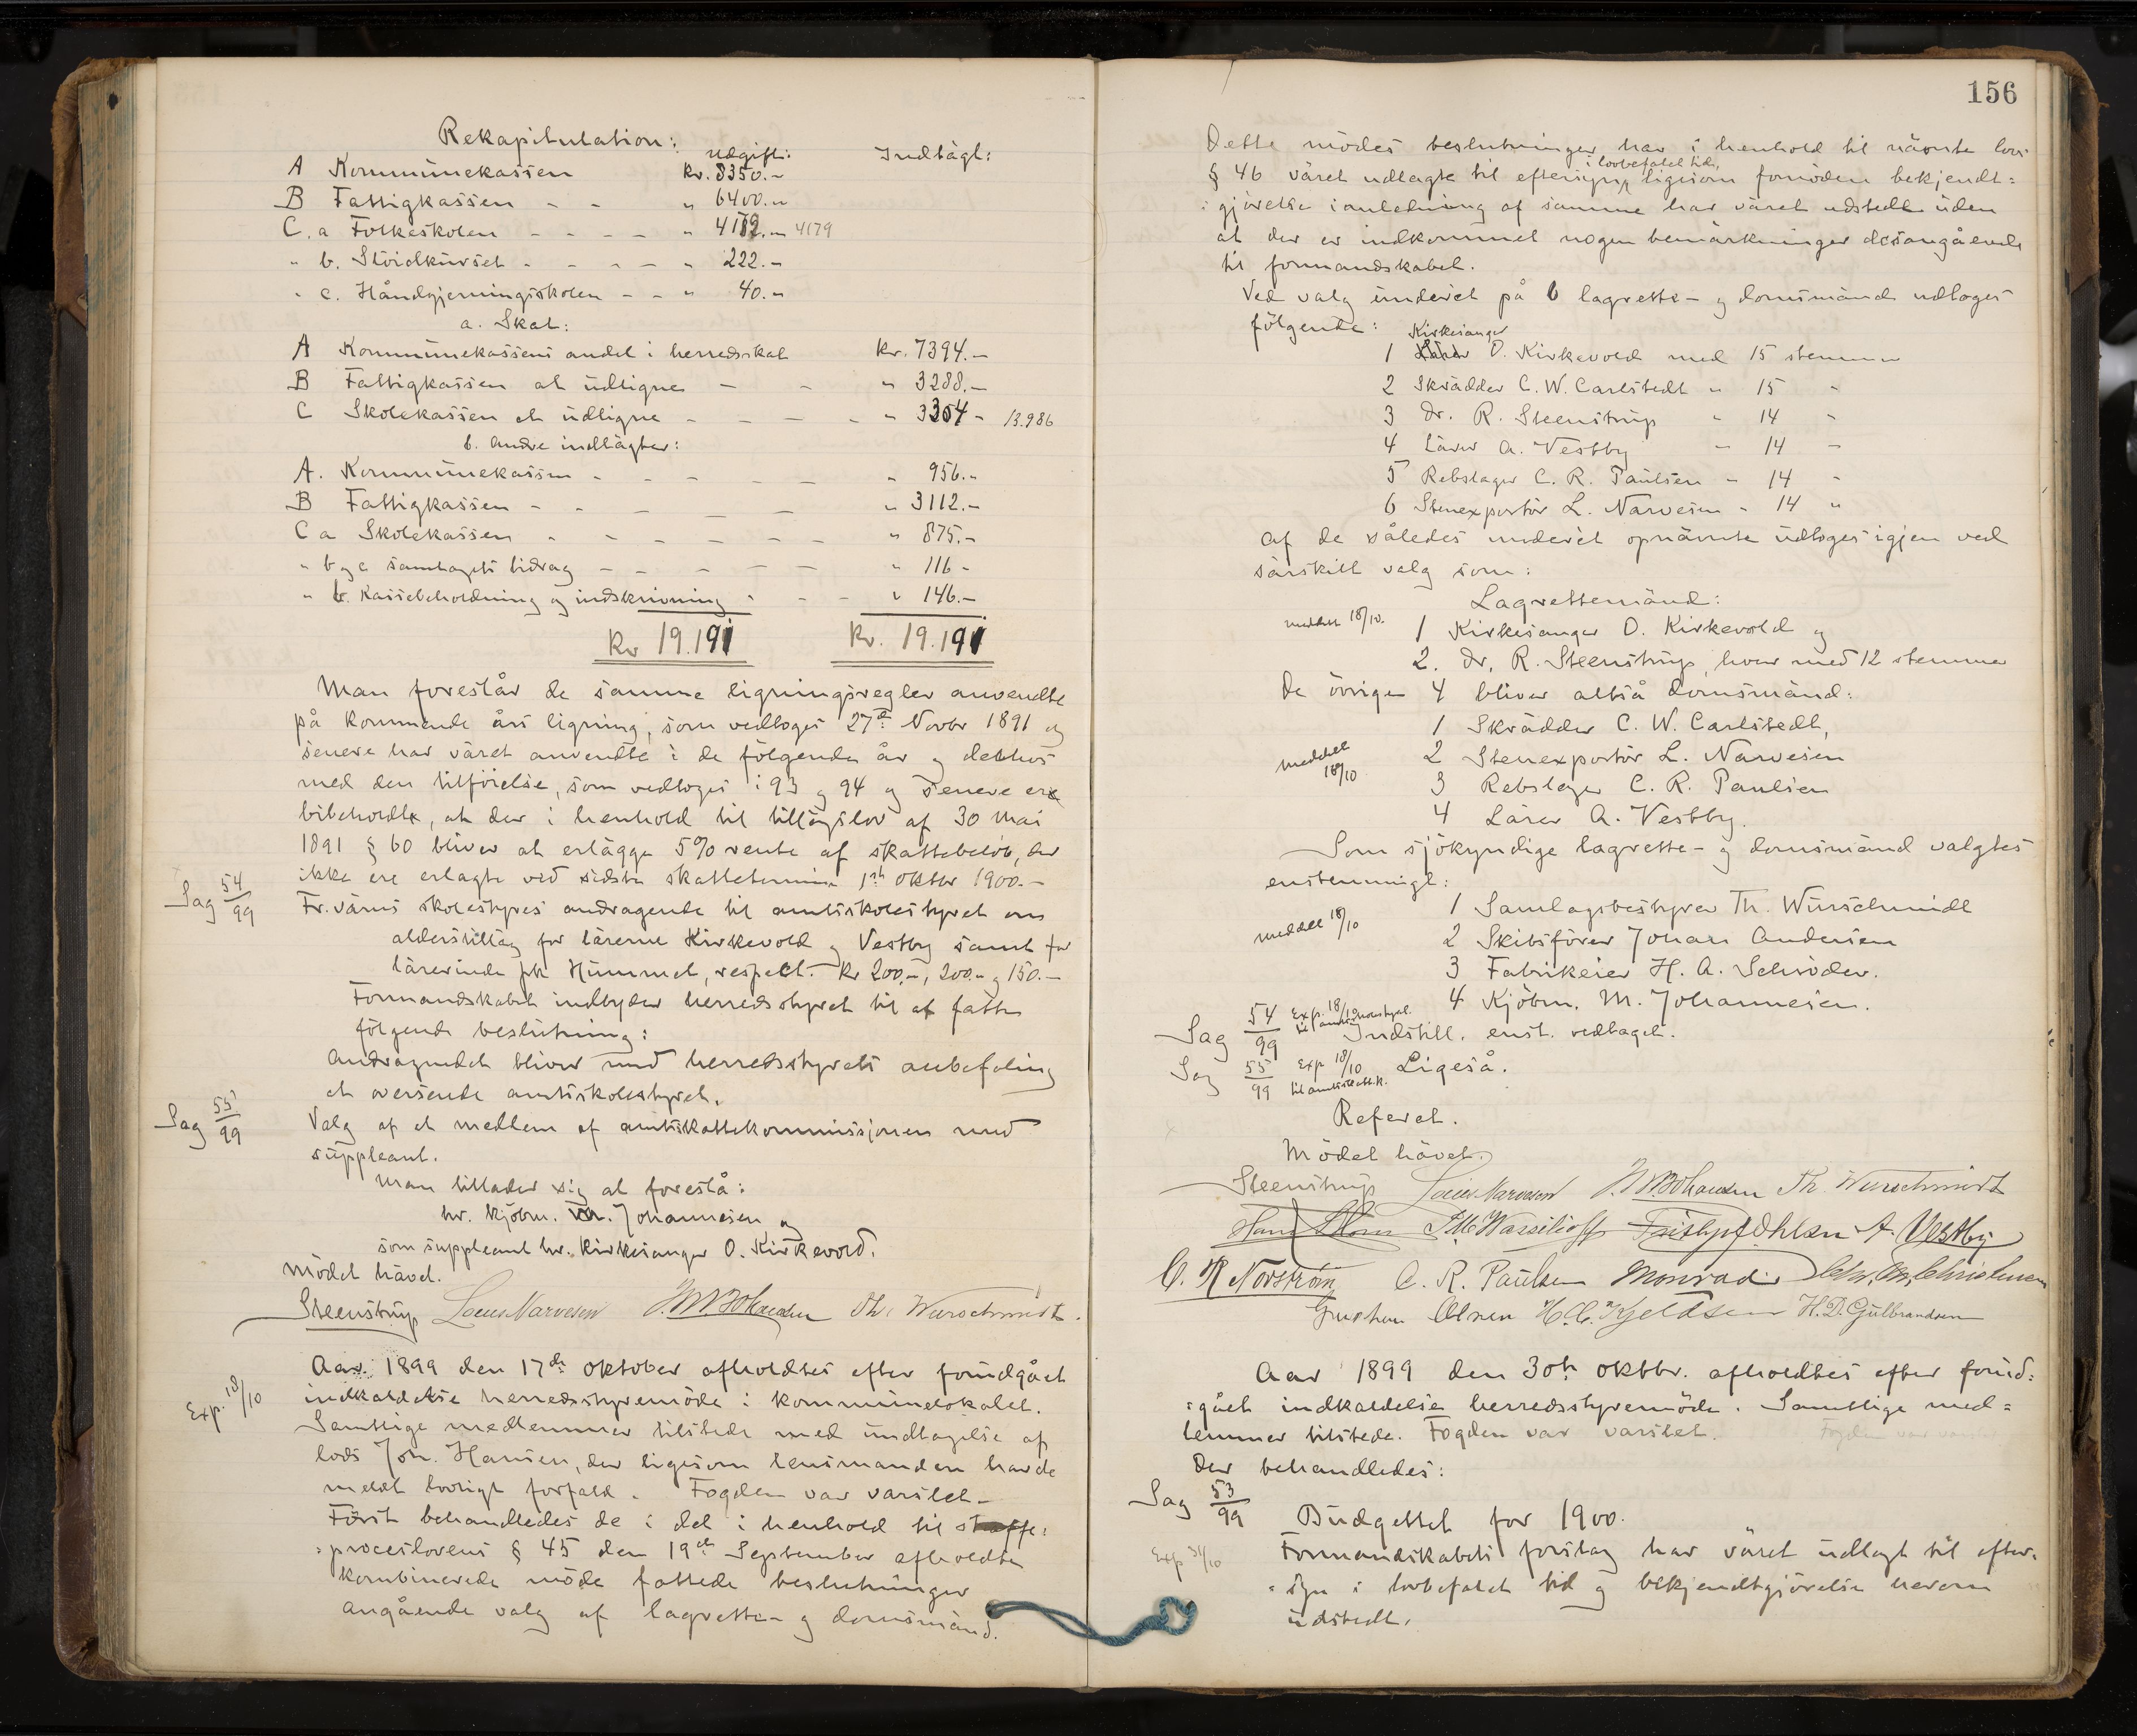 Rekapitulation:
Udgift: Indtägt:
A Kommunekassen kr. 8350.-
B Fattigkassen - - " 6400."
C. a Folkeskolen - - - - " 4179
" b. Slöidkurset - - - - " 222.-
" c. Håndgjerningsskolen - - " 40.-
a. Skat:
A Kommunekassens andel i herredsskat kr. 7394.-
B Fattigkassen at udligne - - " 3288.-
C Skolekassen at udligne - - - - " 3304 - 13.986
b. Andre indtägter:
A. Kommunekassen - - - - - " 956.-
B Fattigkassen - - - - - " 3112.-
C a Skolekassen - - - - - - " 875.-
" b og c samlagets bidrag - - - - - " 116 -
" Kassebeholdning og indskrivning - - - " 146.-
Kr 19.191 Kr. 19.191
Man foreslår de samme ligningsregler anvendte
på kommende års ligning, som vedtoges 27de Novbr 1891 og
senere har väret anvendte i de fölgende år og desthos
med den tilförelse, som vedtoges i 93 og 94 og senere ere
bibeholdte, at der i henhold til tillägslov af 30 Mai
1891 § 60 bliver at erlägge 5% rente af skattebelöb, der
ikke ere erlagte ved sidste skattetermin 1ste Oktbr 1900.-
Sag 54/99 Fr.värns skolestyres andragende til amtsskolestyret om
alderstilläg for lärerne Kirkevold og Vestby samt for
lärerinde frk Hummel, respekt. Kr 200,-, 200.- og 150.-
Formandskabet indbyder herredsstyret til at fatte
fölgende beslutning:
Andragendet bliver med herredsstyrets anbefaling
at oversende amtsskolestyret.
Sag 55/99 Valg af et medlem af amtsskattekommissjonen med
suppleant.
Man tillader sig at foreslå:
hr. kjöbm. M. Johannesen og
som suppleant hr. kirkesanger O. Kirkevold.
Mödet hävet.
Steenstrup Louis Narvesen Th. Wurschmidt.
Aar 1899 den 17de Oktober afholdtes efter forudgået
Exp. 18/10 indkaldelse herredsstyremöde i kommunelokalet.
Samtlige medlemmer tilstede med undtagelse af
lods Joh. Hansen, der ligesom lensmanden havde
meldt lovligt forfald. Fogden var varslet -
Först behandledes de i det i henhold til straffe=
=proceslovens § 45 den 19de September afholdte
kombinerede möde fattede beslutninger
angående valg af lagrette- og domsmänd.
156
Dette mödes beslutninger har i henhold til nävnte lovs
i lovbefalet tid,
§ 46 väret udlagte til eftersyn ligesom fornöden bekjendt=
=gjörelse i anledning af samme har väret udstedt uden
at der er indkommet nogen bemärkninger desangående
til formandskabet.
Ved valg underet på 6 lagrette- og domsmänd udtoges
fölgende: Kirkesanger
1 O. Kirkevold med 15 stemmer
2 Skrädder C. W. Carlstedt " 15 "
3 Dr. R. Steenstrup " 14 "
4 Lärer A. Vestby " 14 "
5 Rebslager C. R. Paulsen " 14 "
6 Stenexportör L. Narvesen " 14 "
Af de således underet opnävnte udtoges igjen ved
särskilt valg som:
Lagrettemänd:
meddelt 18/10. 1 Kirkesanger O. Kirkevold og
2. Dr. R. Steenstrup, hver med 12 stemmer
De övrige 4 bliver altså domsmänd:
1 Skrädder C. W. Carlstedt,
meddelt 18/10 2 Stenexportör L. Narvesen
3 Rebslager C. R. Paulsen
4 Lärer A. Vestby.
Som sjökyndige lagrette- og domsmänd valgtes
enstemmigt:
1 Samlagsbestyrer Th. Wurschmidt
meddelt 18/10 2 Skibsförer Johan Andersen
3 Fabrikeier H. A. Schröder.
4 Kjöbm. M. Johannesen.
Sag 54/99 Exp. 18/10 til amtsskolestyret. Indstill. enst. vedtaget.
Sag 55/99 Exp 18/10 til amtsskatt.k. Ligeså.
Referet.
Mödet hävet.
Steenstrup Louis Narvesen Th. Wurschmidt
Hans M Wassilioff Frithjof Ohlsen A. Vestby
C. R Norström C. R. Paulsen Monrad Chr. Christensen
Gustav Olsen H. C. Kjeldsen H. D. Gulbrandsen
Aar 1899 den 30te Oktbr. afholdtes efter forud=
=gået indkaldelse herredsstyremöde. Samtlige med=
lemmer tilstede. Fogden var varslet.
Der behandledes:
Sag 53/99 Budgettet for 1900.
Exp 31/10 Formandskabets forslag har väret udlagt til efter=
=syn i lovbefalet tid og bekjendtgjörelse herom
udstedt.